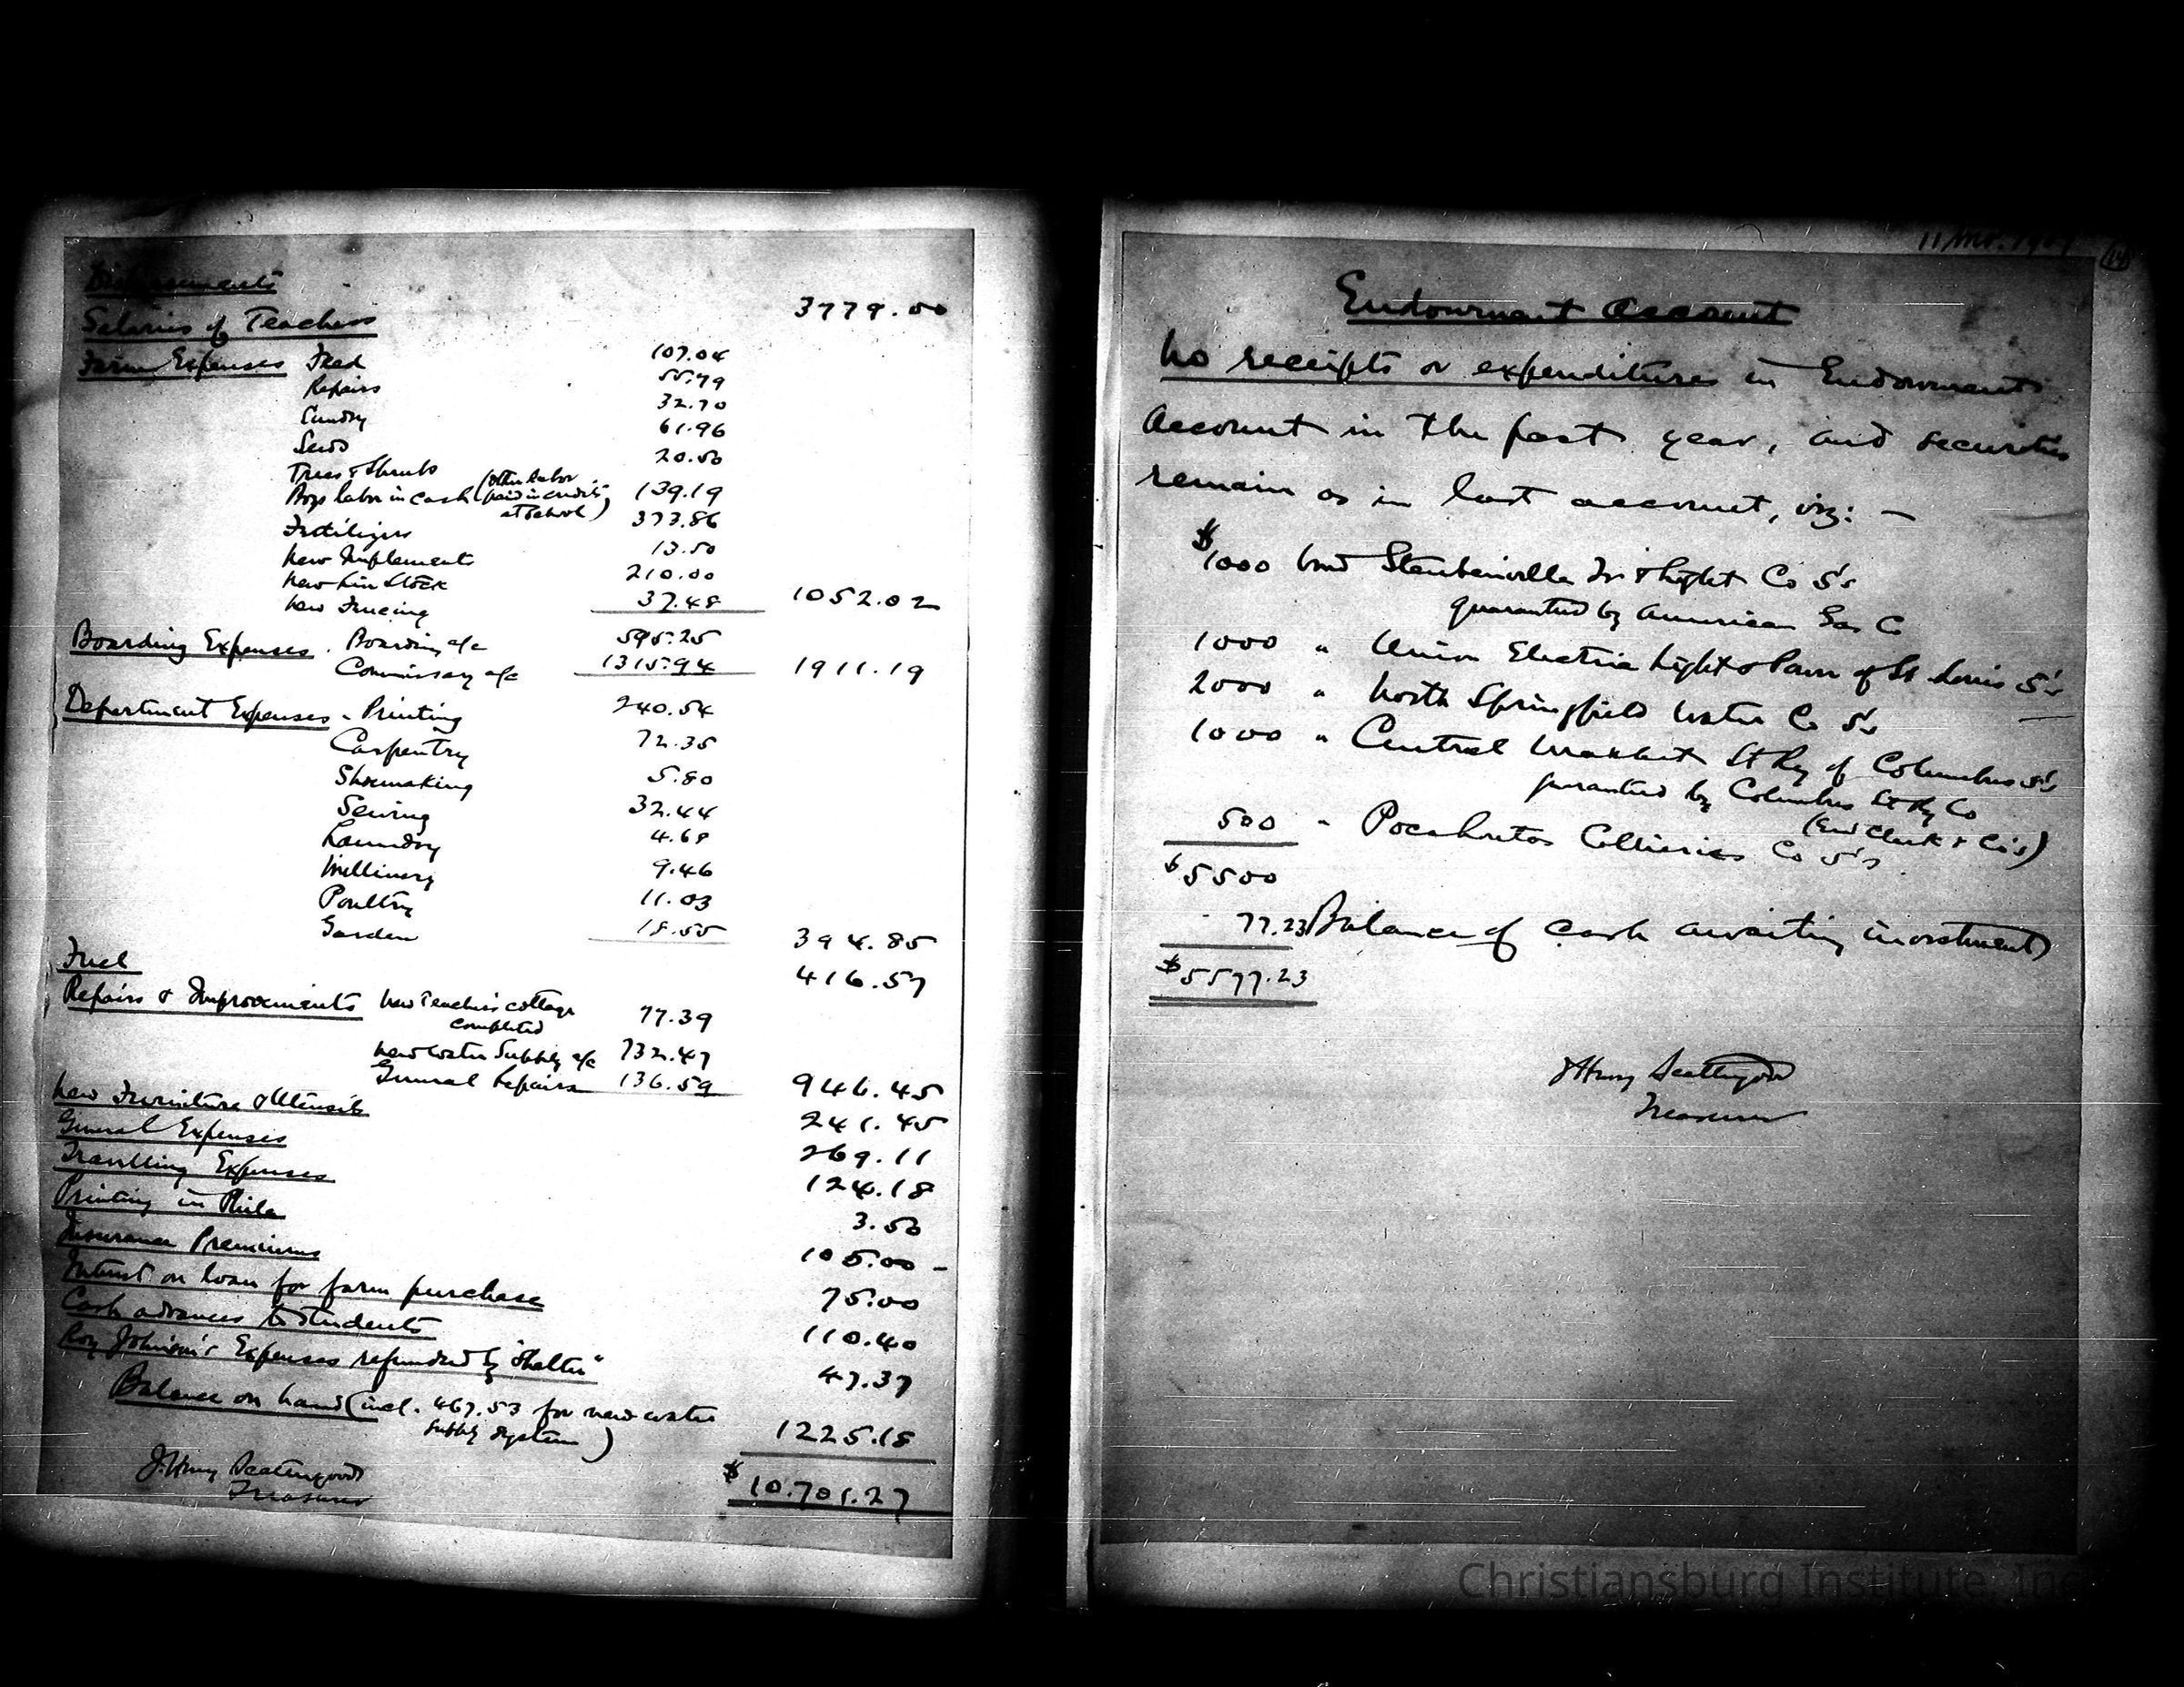 Disbursements
Salaries of Teachers 3779.00
Farm Expenses Feed 107.04
Repairs 55.79
Sundry 32.70
Seeds 61.96
Trees & Shrubs 20.50
Boys labor in cash (other labor paid in credits at school) 139.19
Fertilizers 373.86
New Implements 13.50
New Live Stock 210.00
New Fencing 37.48 1052.02
Boarding Expenses. Boarding a/c 595.25
Commissary a/c 1315.94 1911.19
Department Expenses - Printing 240.54
Carpentry 72.35
Shoemaking 5.80
Sewing 32.44
Laundry 4.68
Millinery 9.46
Poultry 11.03
Garden 18.55 394.85
Fuel 416.57
Repairs & Improvements New Teachers cottage
completed 77.39
New Water Supply a/c 732.47
General Repairs 136.59 946.45
New Furniture & Utensils 241.45
General Expenses 269.11
Travelling Expenses 124.18
Printing in Phila 3.50
Insurance Premiums 105.00 -
Interest on loan for farm purchase 75.00
Cash advances to Students 110.40
Roy Johnson's Expenses refunded by "Shelter" 47.37
Balance on hand (incl. 467.53 for new water
supply system) 1225.18
$10.701.27
J. Henry Scattergood
Treasurer
11 mo. 1909
14
Endowment Account
No receipts or expenditures in Endowment
Account in the past year, and securities
remain as in last account, viz: -
$1000 bond Steubenville Tr & Light Co 5's
guaranteed by American Gas Co
1000 " Union Electric Light & Power of St Louis 5's
2000 " North Springfield Water Co 5's
1000 " Central Market St Ry of Columbus 5's
guaranteed by Columbus St Ry Co
(E W Clark & Co's)
500 " Pocahontas Collieries Co 5's
$5500
77.23 (Balance of cash awaiting investment)
$5577.23
J Henry Scattergood
Treasurer
Christiansburg Institute, Inc